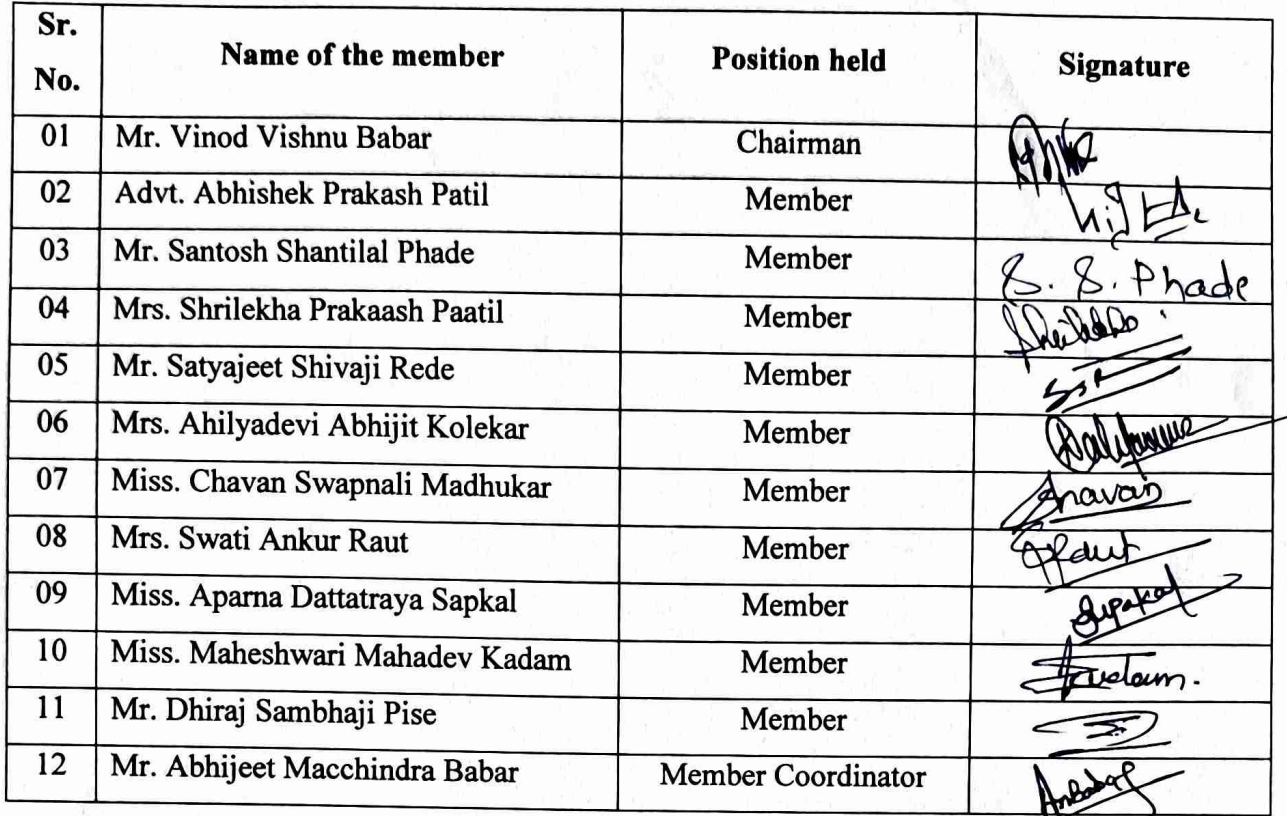 Sr. No. Name of the member Position held Signature
01 Mr. Vinod Vishnu Babar Chairman
02 Advt. Abhishek Prakash Patil Member
03 Mr. Santosh Shantilal Phade Member S. S. Phade
04 Mrs. Shrilekha Prakaash Paatil Member
05 Mr. Satyajeet Shivaji Rede Member
06 Mrs. Ahilyadevi Abhijit Kolekar Member
07 Miss. Chavan Swapnali Madhukar Member
08 Mrs. Swati Ankur Raut Member
09 Miss. Aparna Dattatraya Sapkal Member
10 Miss. Maheshwari Mahadev Kadam Member
11 Mr. Dhiraj Sambhaji Pise Member
12 Mr. Abhijeet Macchindra Babar Member Coordinator